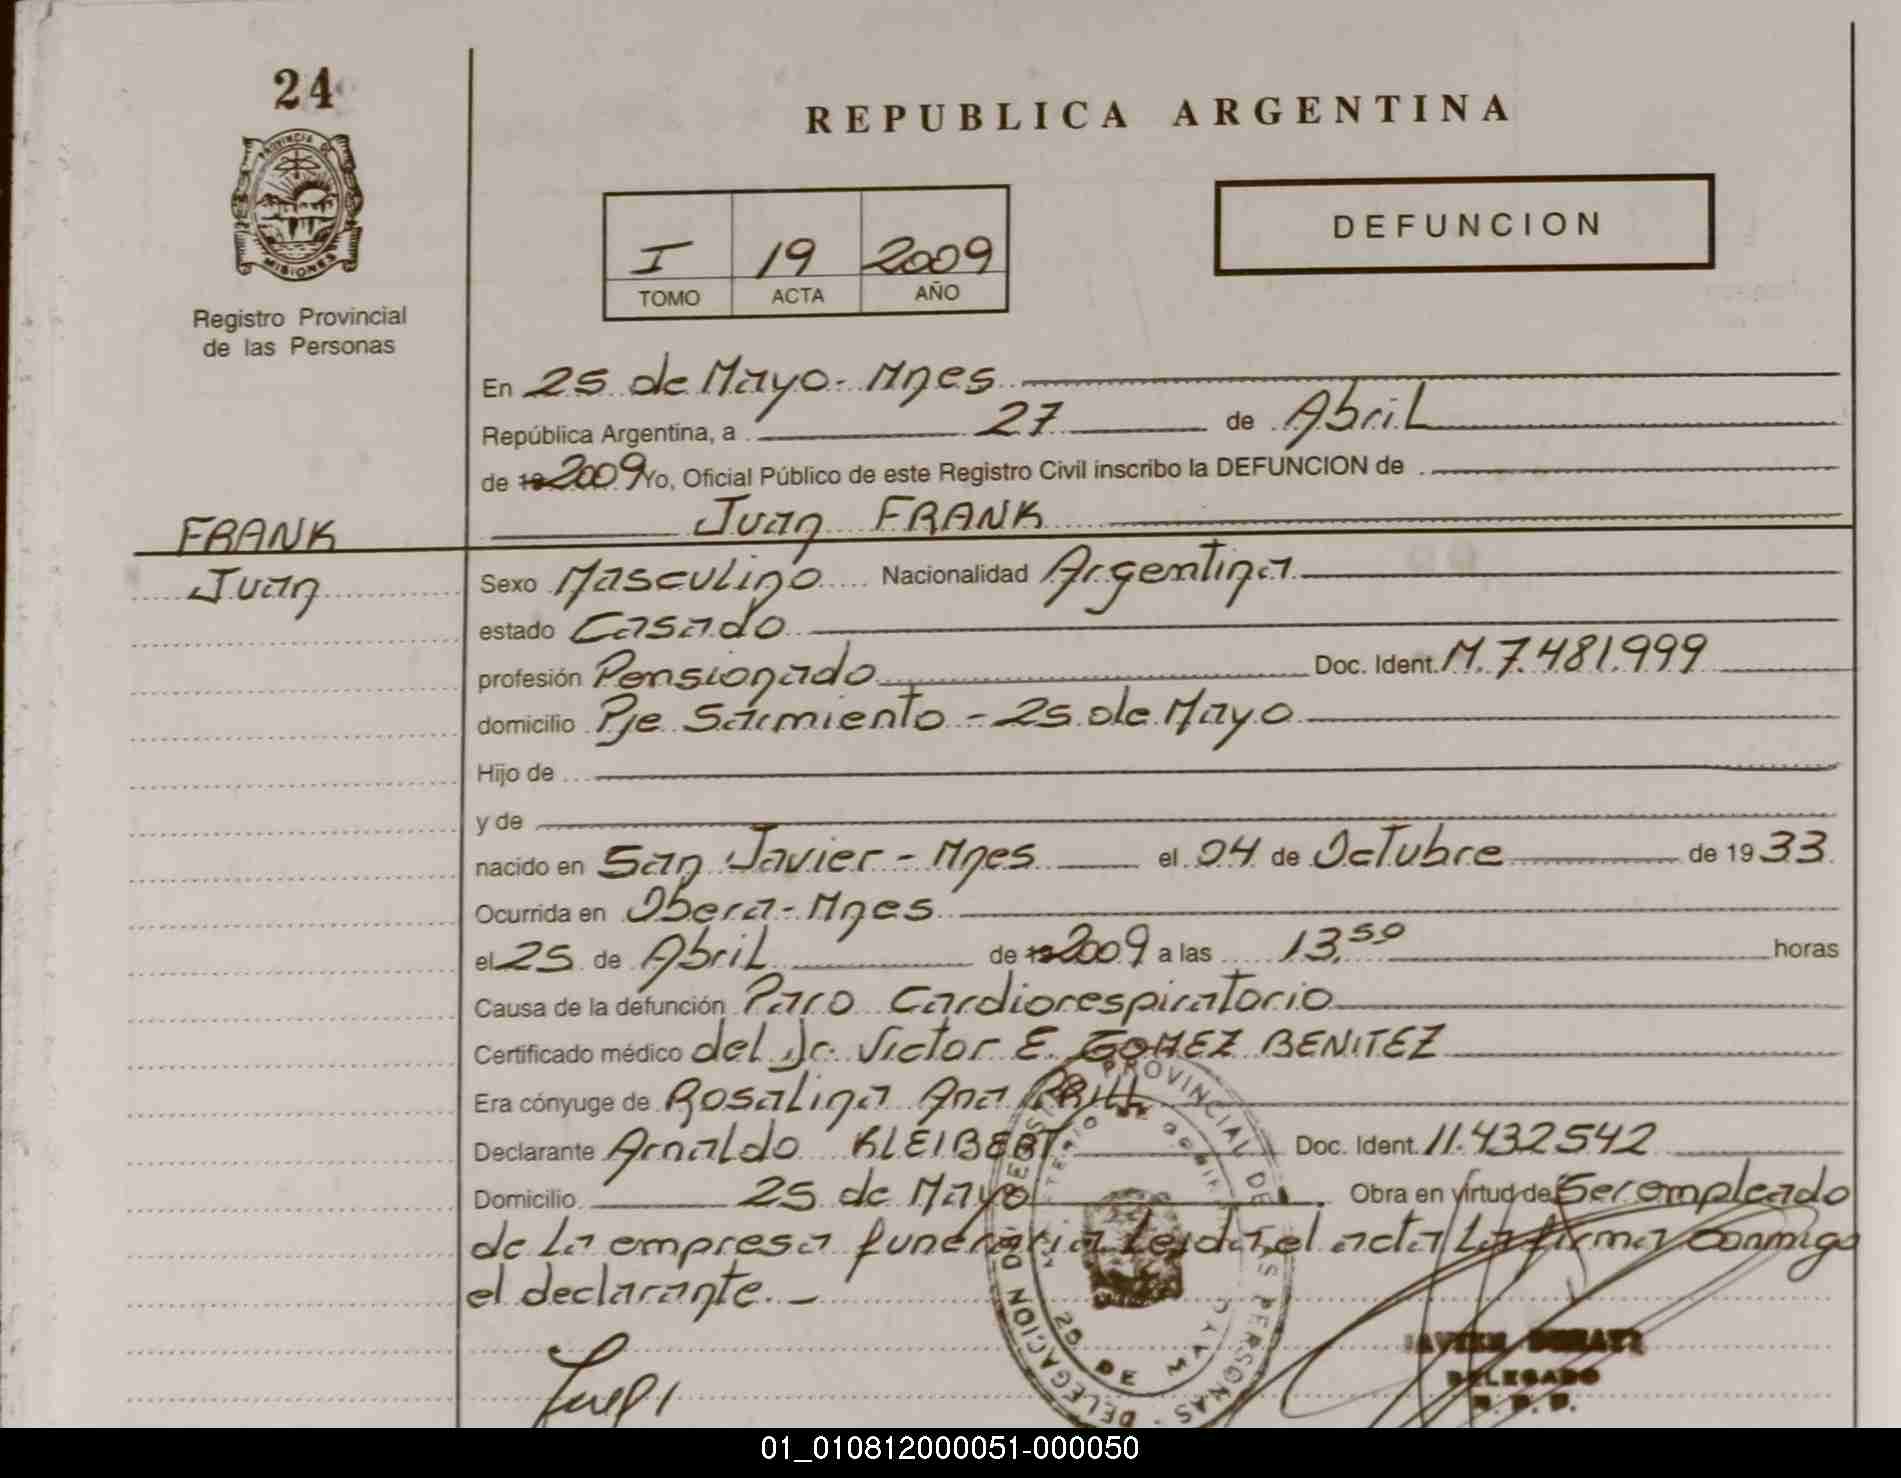 24
REPUBLICA ARGENTINA
PROVINCIA DE
MISIONES
Registro Provincial
de las Personas
I 19 2009
TOMO ACTA AÑO
DEFUNCION
En 25 de Mayo - Mnes
República Argentina, a 27 de Abril
de 19 2009 Yo, Oficial Público de este Registro Civil inscribo la DEFUNCION de
Juan FRANK
FRANK
Juan
Sexo Masculino Nacionalidad Argentina
estado Casado
profesión Pensionado Doc. Ident. M. 7.481.999
domicilio Pje Sarmiento - 25 de Mayo
Hijo de
y de
nacido en San Javier - Mnes el 04 de Octubre de 1933
Ocurrida en Obera - Mnes
el 25 de Abril de 19 2009 a las 13,50 horas
Causa de la defunción Paro Cardiorespiratorio
Certificado médico del Dr. Victor E. GOMEZ BENITEZ
Era cónyuge de Rosalina Ana PRILL
Declarante Arnaldo KLEIBERT Doc. Ident. 11.432542
Domicilio 25 de Mayo Obra en virtud de Ser empleado
de la empresa funeraria Leida el acta La firma conmigo
el declarante. -
DELEGACION DEL REGISTRO PROVINCIAL DE LAS PERSONAS
25 DE MAYO
JAVIER
DELEGADO
01_010812000051-000050